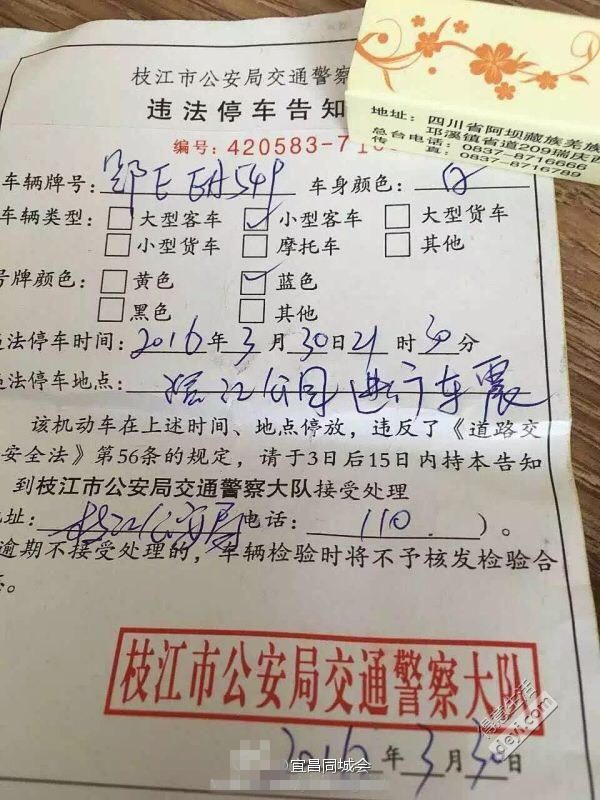 枝江市公安局交通警察
违法停车告知
编号：420583-71
车辆牌号：鄂E EH549 车身颜色：白
车辆类型：大型客车 小型客车 大型货车
小型货车 摩托车 其他
号牌颜色：黄色 蓝色
黑色 其他
违法停车时间：2016年3月30日21时30分
违法停车地点：滨江公园进行车震
该机动车在上述时间、地点停放，违反了《道路交
安全法》第56条的规定，请于3日后15日内持本告知
到枝江市公安局交通警察大队接受处理
地址：枝江公安局电话：110）。
逾期不接受处理的，车辆检验时将不予核发检验合
志。
枝江市公安局交通警察大队
2016年3月30日
地址：四川省阿坝藏族羌族
邛溪镇省道209瑞庆西
总台电话：0837-8716666
传真：0837-8716789
得意生活
deyi.com
宜昌同城会